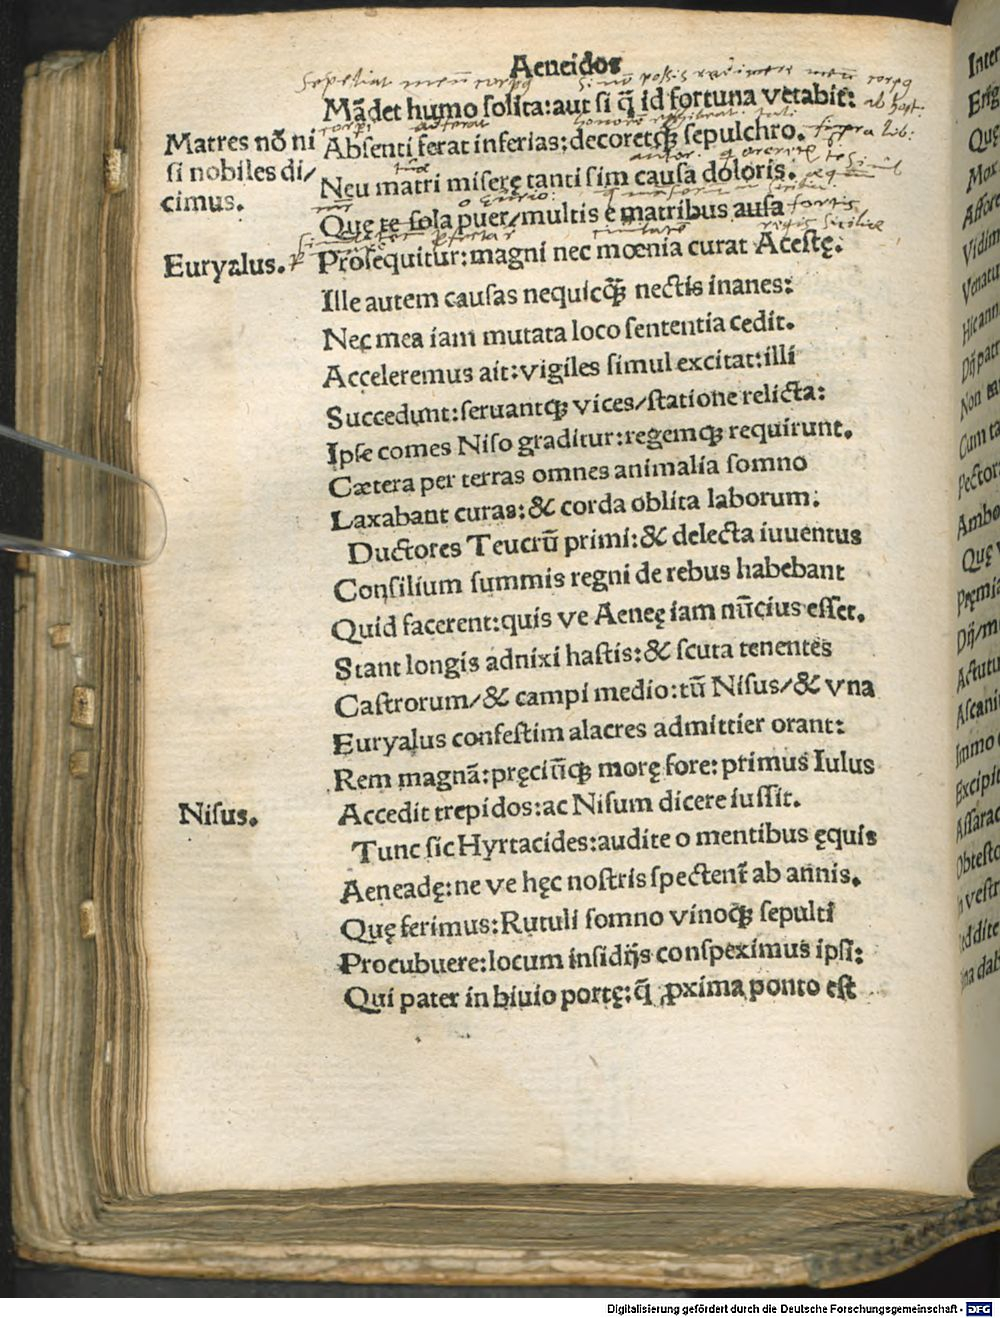 Aeneidos
sepeliat meū corpꝰ si nō possis redimere meū corpꝰ
Mādet humo solita:aut si q̄ id fortuna vetabit: ab host.
Matres nō ni
si nobiles di/
cimus.
Absenti ferat inferias:decoretqꝫ sepulchro.
Neu matri miserę tanti sim causa doloris.
Quę te sola puer/multis e matribus ausa fortis
Euryalus.
Prosequitur:magni nec mœnia curat Acestę.
Ille autem causas nequicqꝫ nectis inanes:
Nec mea iam mutata loco sententia cedit.
Acceleremus ait:vigiles simul excitat:illi
Succedunt:seruantqꝫ vices/statione relicta:
Ipse comes Niso graditur:regemqꝫ requirunt.
Cætera per terras omnes animalia somno
Laxabant curas:& corda oblita laborum:
Ductores Teucrū primi:& delecta iuuentus
Consilium summis regni de rebus habebant
Quid facerent:quis ve Aeneę iam nūcius esset.
Stant longis adnixi hastis:& scuta tenentes
Castrorum/& campi medio:tū Nisus/& vna
Euryalus confestim alacres admittier orant:
Rem magnā:pręciūqꝫ morę fore:primus Iulus
Nisus.
Accedit trepidos:ac Nisum dicere iussit.
Tunc sic Hyrtacides:audite o mentibus ęquis
Aeneadę:ne ve hęc nostris spectent̄ ab annis.
Quę ferimus:Rutuli somno vinoqꝫ sepulti
Procubuere:locum insidijs conspeximus ipsi:
Qui pater in biuio portę:q̄ ꝓxima ponto est
Digitalisierung gefördert durch die Deutsche Forschungsgemeinschaft - DFG